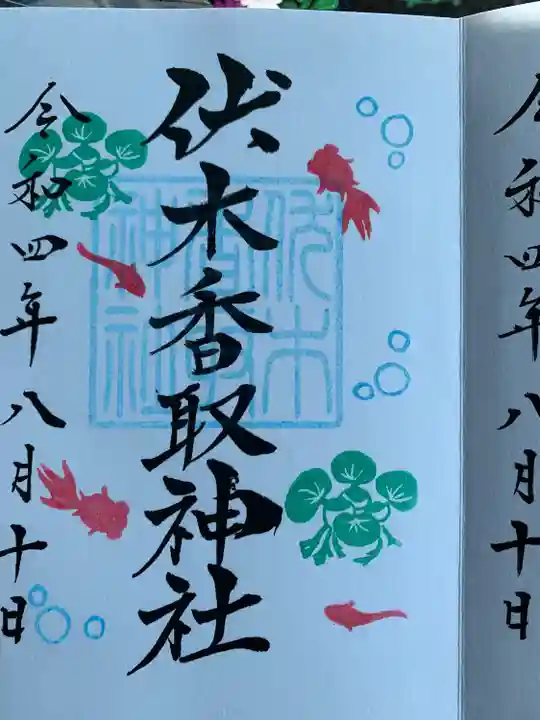 令和四年八月十日
伏木香取神社
伏木香取神社
令和四年八月十日